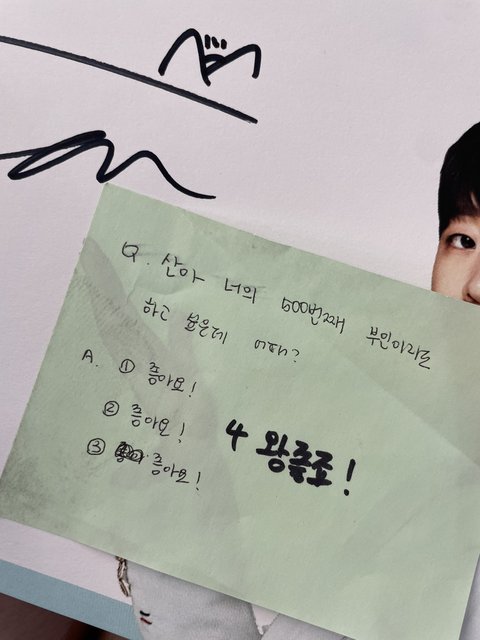 Q. 산아 너의 500번째 부인이라도
하고 싶은데 어때?
A. ① 좋아요!
② 좋아요!
③ 좋아요!
4 왕좋조!